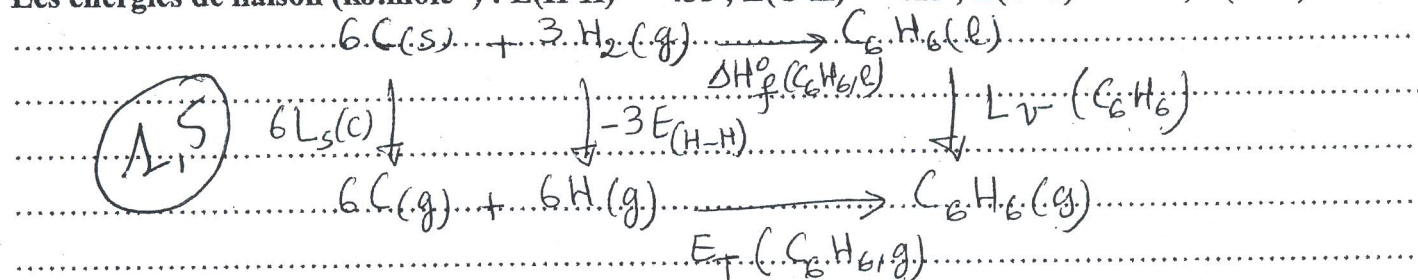 6 C(s) + 3 H₂(g) ⟶ C₆H₆(l)
ΔH°f(C₆H₆,l)
1,5 6Ls(C) ↓ ↓ -3E(H-H) ↓ Lv(C₆H₆)
6 C(g) + 6 H(g) ⟶ C₆H₆(g)
ET(C₆H₆,g)